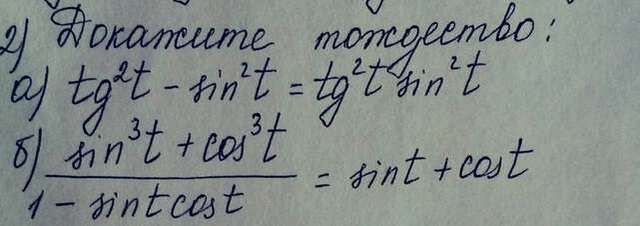 2) Докажите тождество:
а) tg²t - sin²t = tg²t sin²t
б) sin³t + cos³t
1 - sint cost = sint + cost